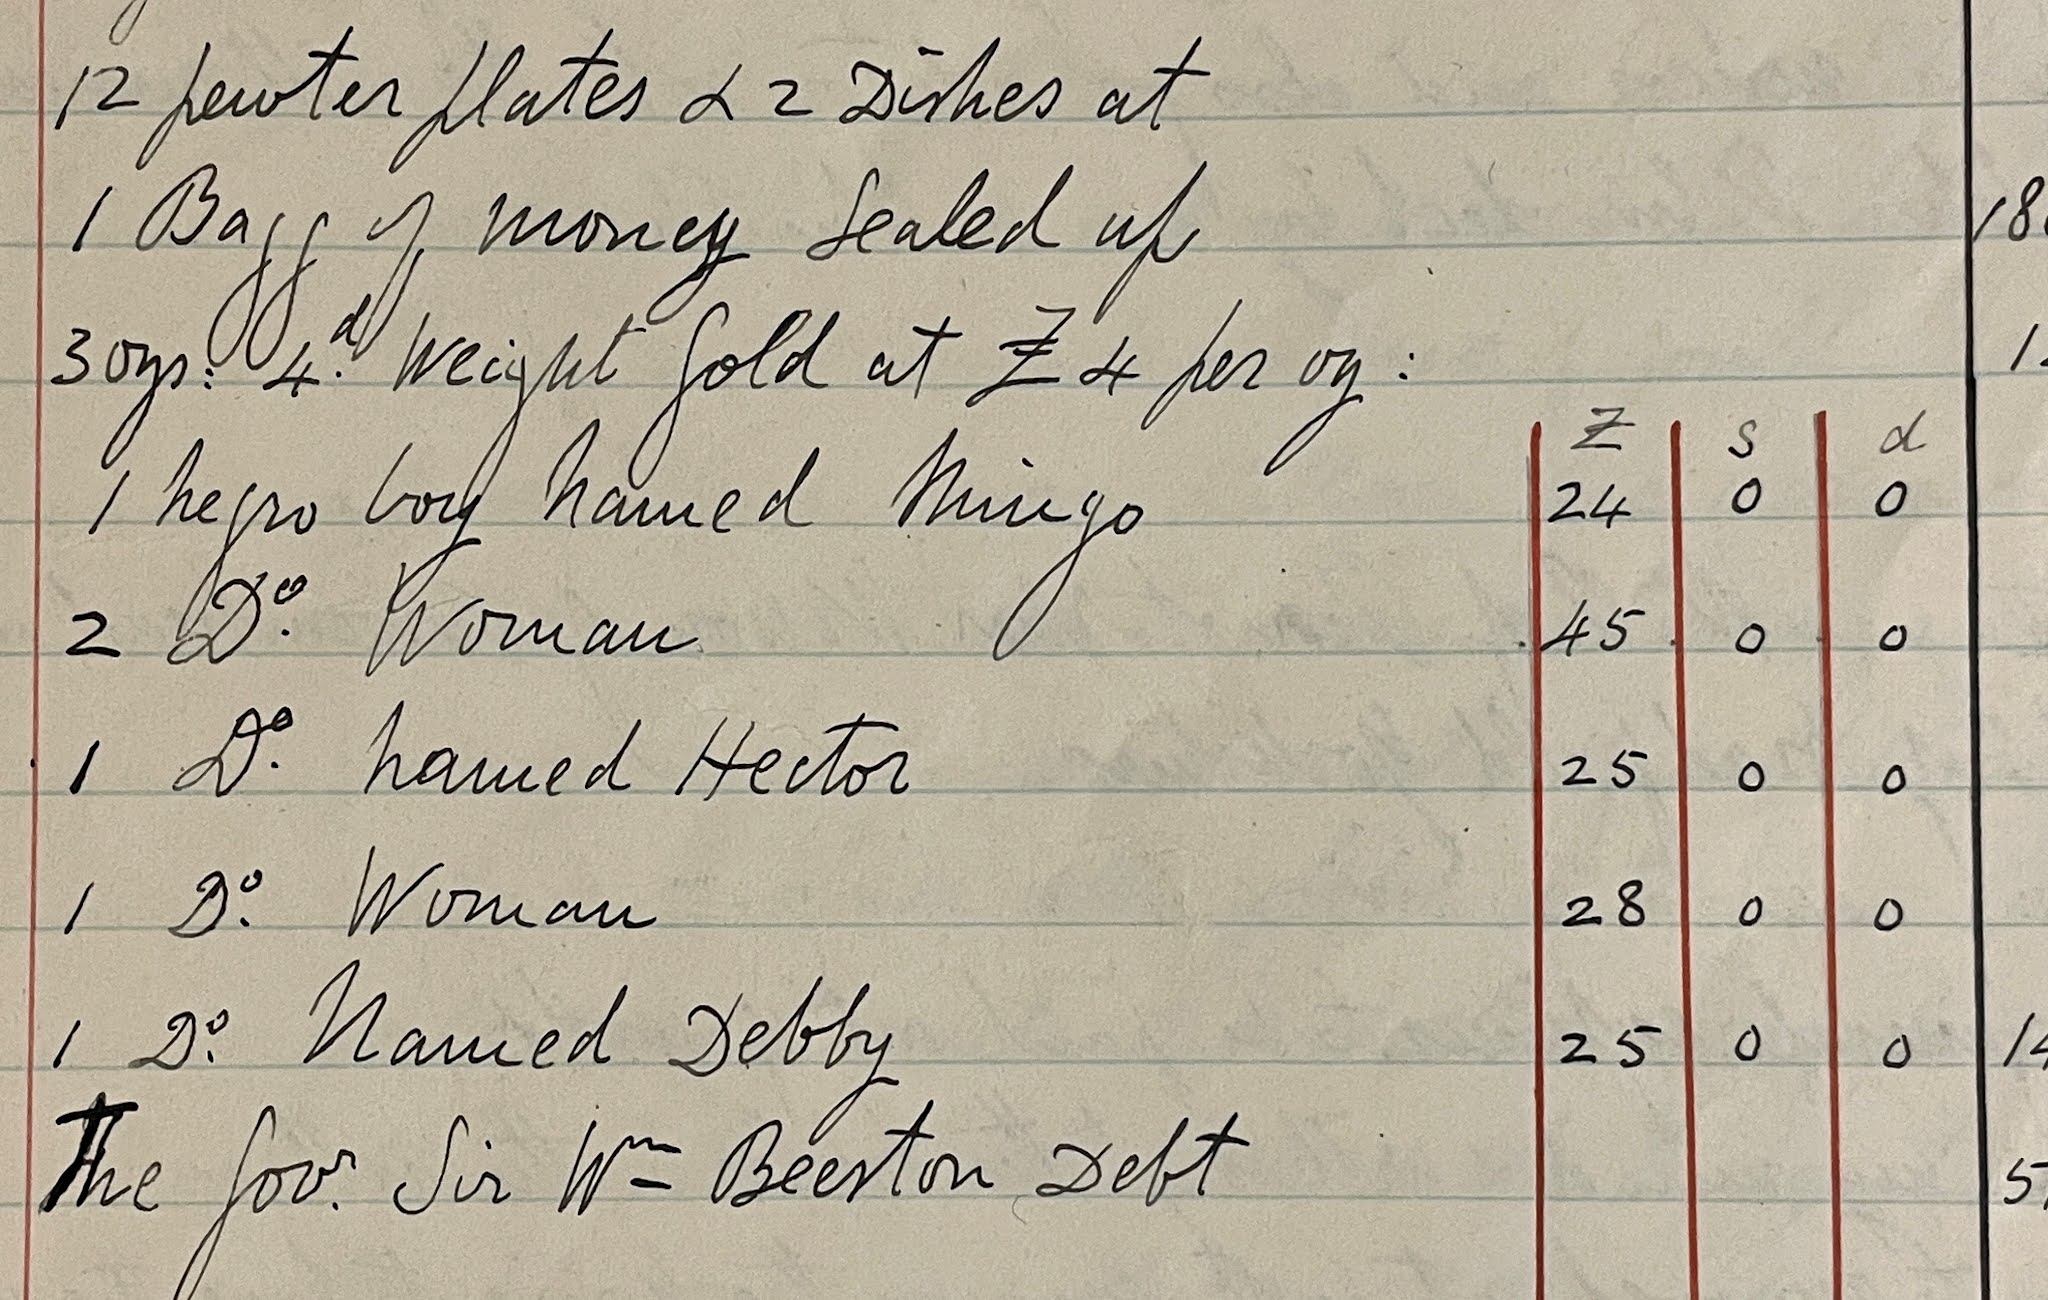 12 pewter plates & 2 Dishes at
1 Bagg of money Sealed up 18
3 ozs: 4.d Weight Gold at £4 per oz: 1
£ s d
1 negro boy named Mingo 24 0 0
2 Do. Woman 45 0 0
1 Do. named Hector 25 0 0
1 Do. Woman 28 0 0
1 Do. Named Debby 25 0 0 14
The Govr. Sir Wm Beeston Debt 5